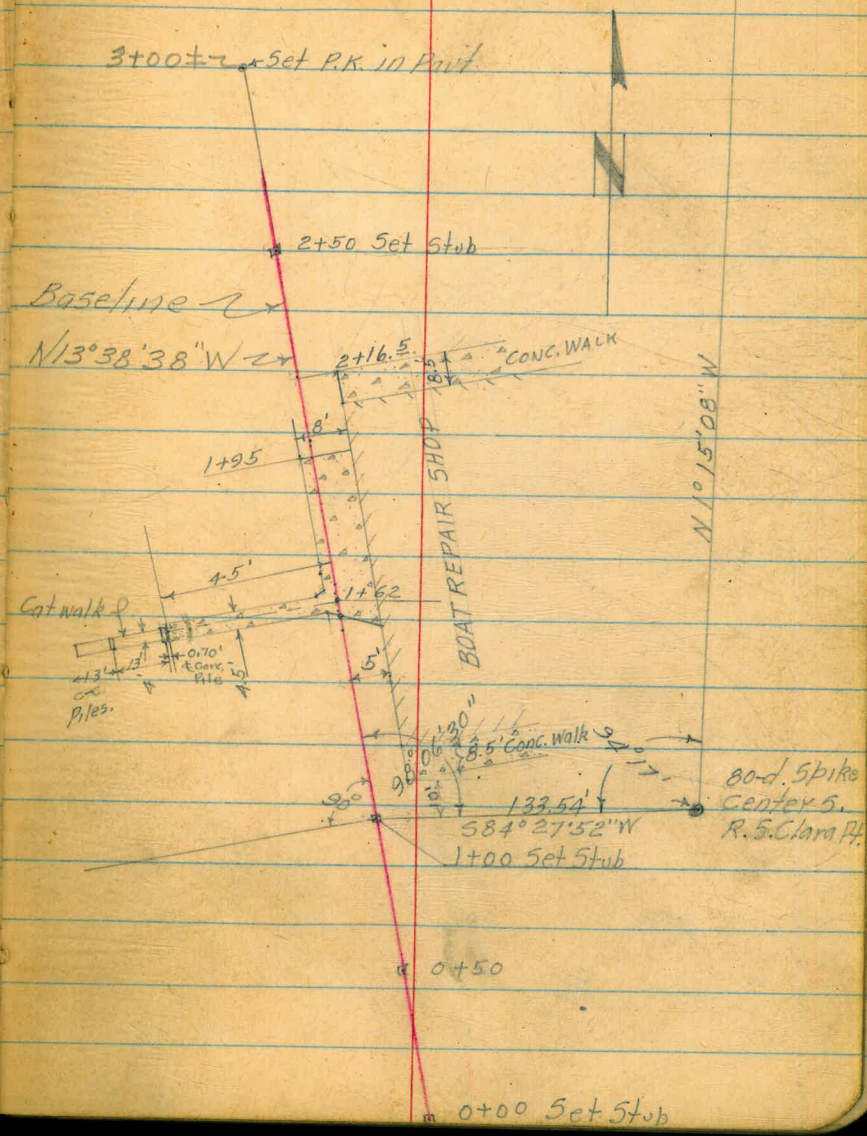 3+00± Set P.K. in Pav't
N
2+50 Set Stub
Baseline
N13°38'38"W
2+16.5 CONC. WALK
8.5
N 1°15'08" W
8'
1+95
BOAT REPAIR SHOP
4.5'
1+62
Catwalk
13' 13' 4' 0.70'
Conc.
Pile 4.5
Piles.
5'
98°06'30"
8.5' Conc. Walk
94°17'
10'
90°
133.54'
S84°27'52"W
80-d. Spike
Center S.
R. S. Clara Pt.
1+00 Set Stub
0+50
0+00 Set Stub